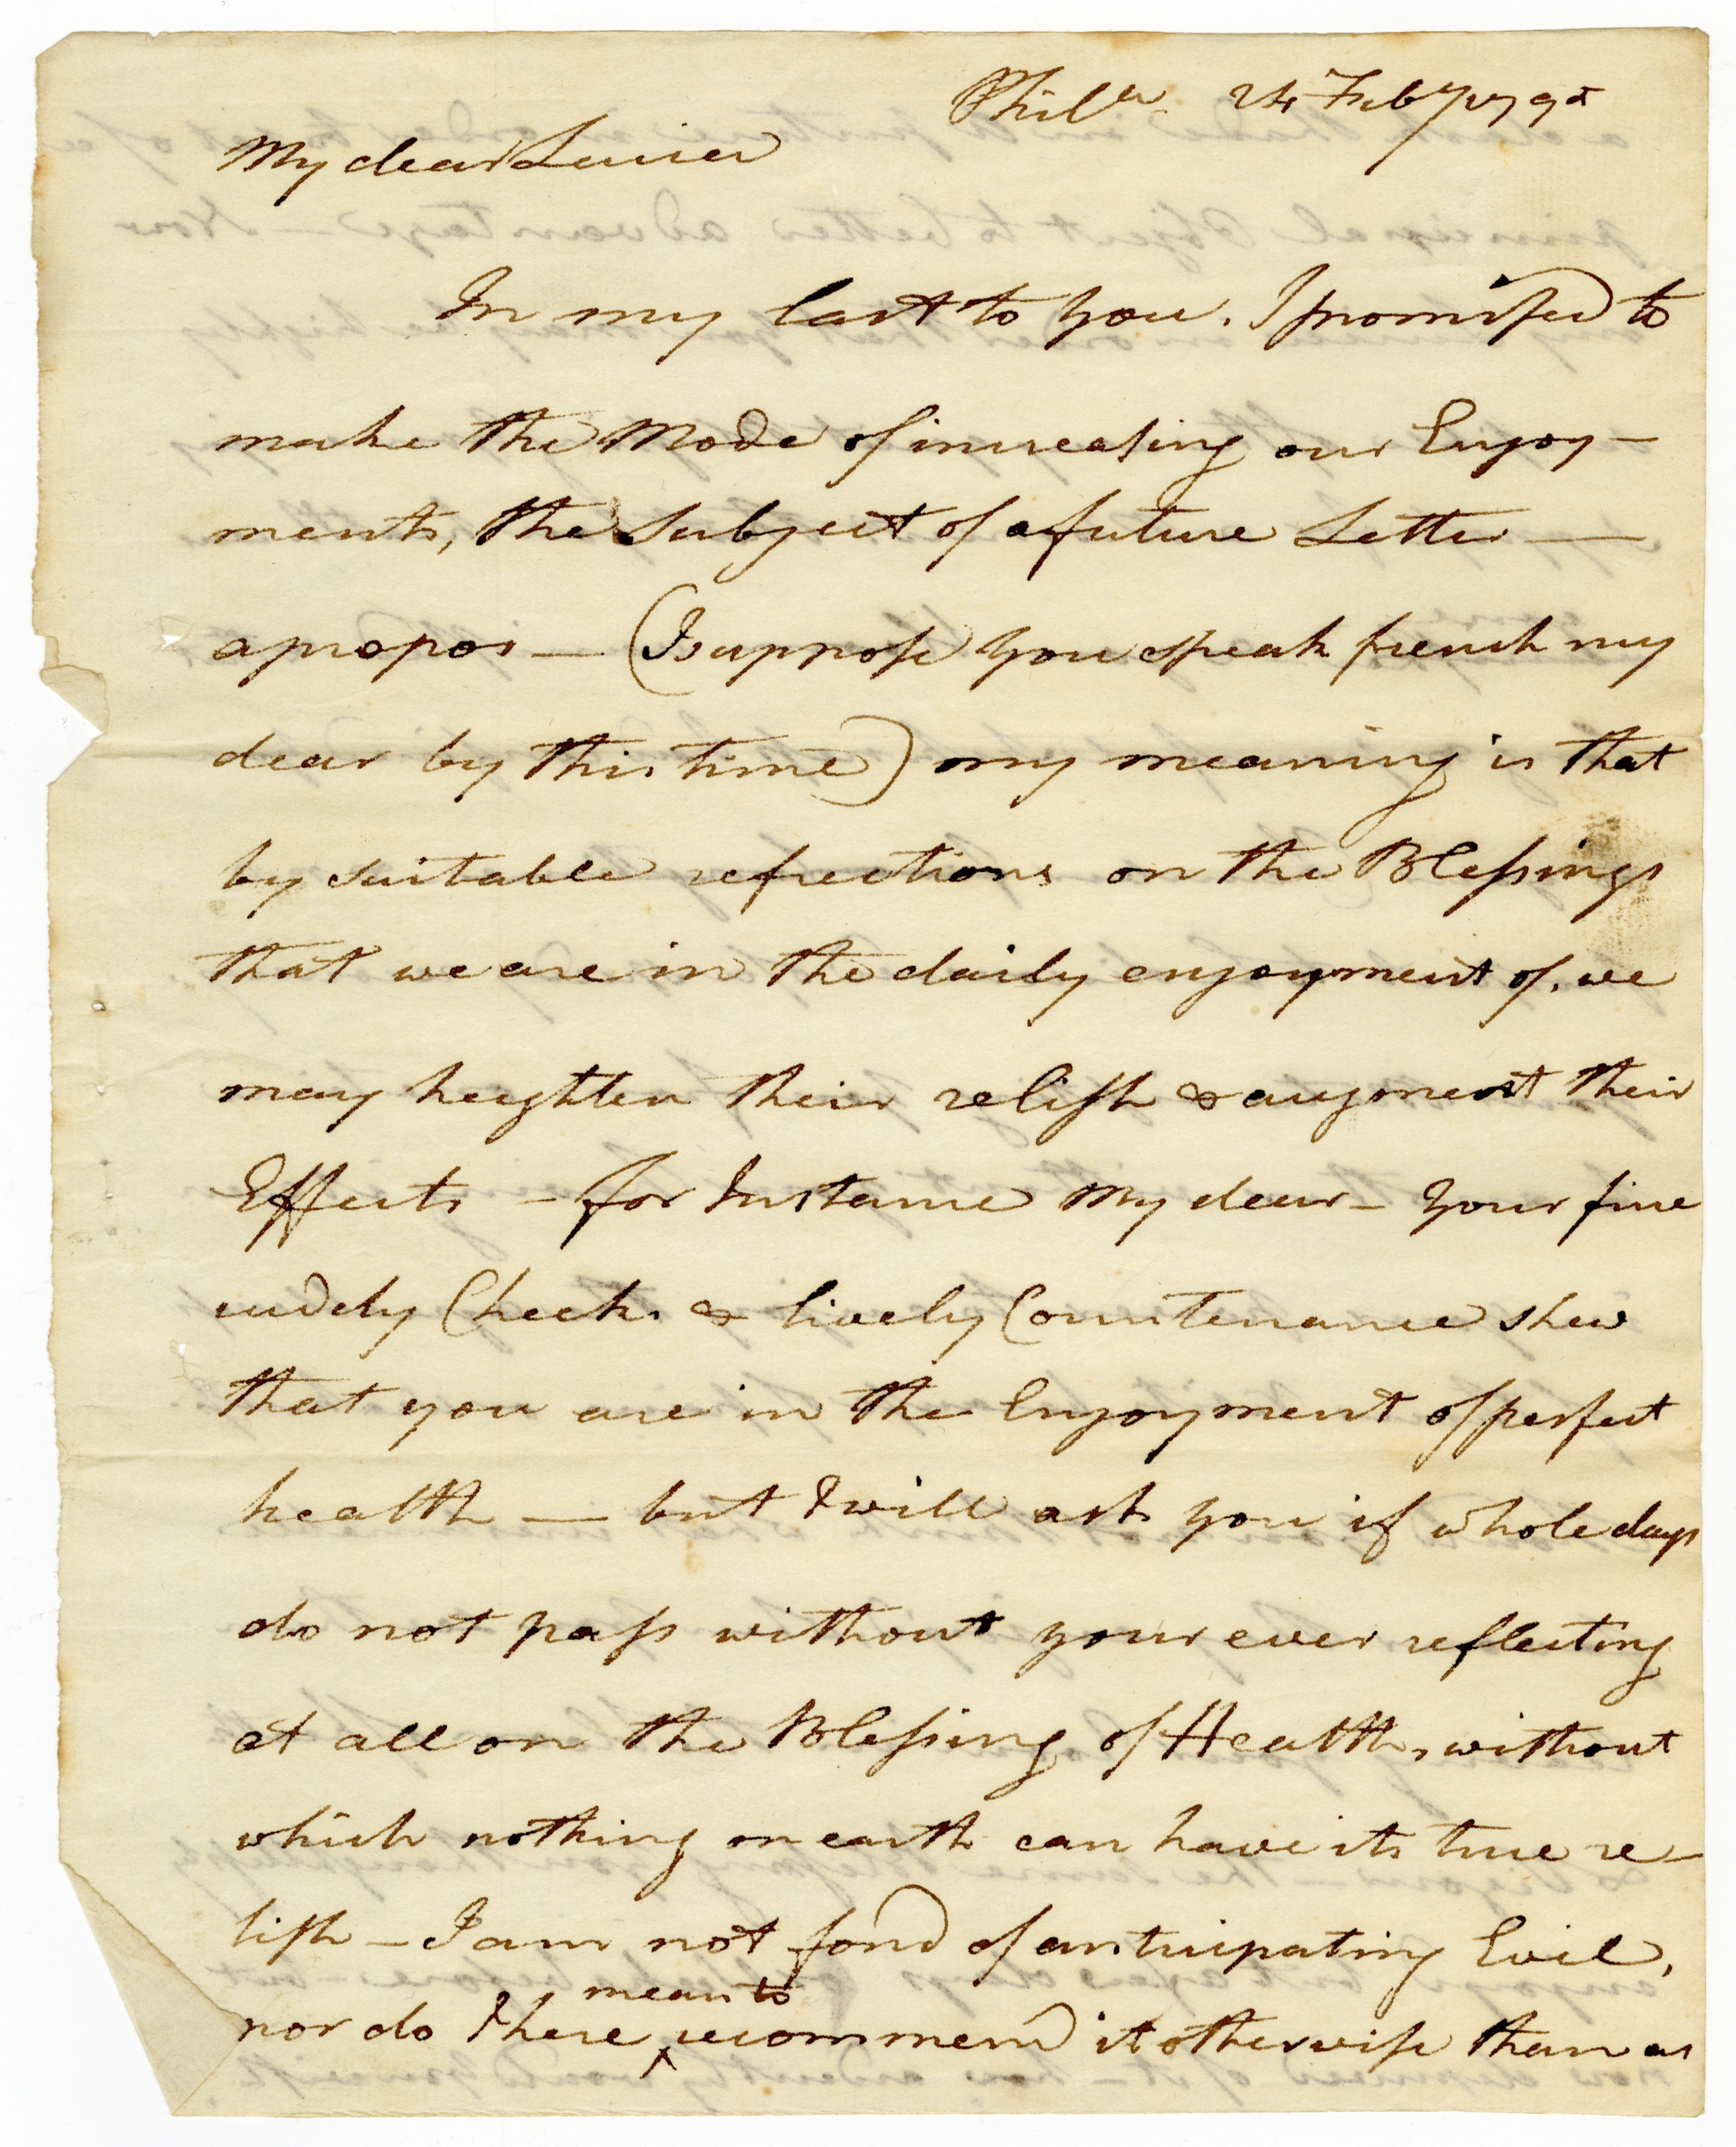 Phila. 24 Feby 179
My dear Louisa
In my last to you, I promised to
make the Mode of increasing our Enjoy-
ments, the Subject of a future Letter —
apropos — (I suppose you speak french my
dear by this time) my meaning is that
by suitable reflections on the Blessings
that we are in the daily enjoyment of, we
may heighten their relish & augment their
Effects — for Instance My dear — Your fine
ruddy Cheeks & lively Countenance shew
that you are in the Enjoyment of perfect
health — but I will ask you if whole days
do not pass without your ever reflecting
at all on the Blessing of Health, without
which nothing on earth can have its true re-
lish — I am not fond of anticipating Evil,
mean to
nor do I here ^ recommend it otherwise than as